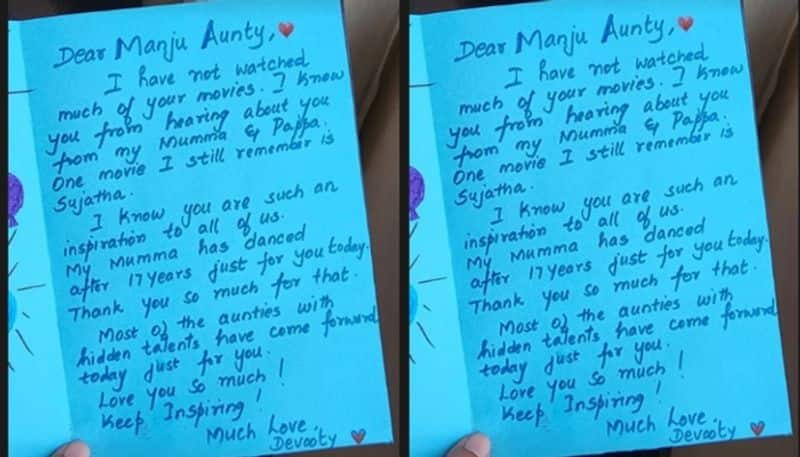 Dear Manju Aunty,
I have not watched
much of your movies. I know
you from hearing about you
from my Mumma & Pappa.
One movie I still remember is
Sujatha.
I know you are such an
inspiration to all of us.
My Mumma has danced
after 17 years just for you today.
Thank you so much for that.
Most of the aunties with
hidden talents have come forward
today just for you.
Love you so much!
Keep Inspiring!
Much Love.
Devooty
Dear Manju Aunty,
I have not watched
much of your movies. I know
you from hearing about you
from my Mumma & Pappa.
One movie I still remember is
Sujatha.
I know you are such an
inspiration to all of us.
My Mumma has danced
after 17 years just for you today.
Thank you so much for that.
Most of the aunties with
hidden talents have come forward
today just for you.
Love you so much!
Keep Inspiring!
Much Love.
Devooty